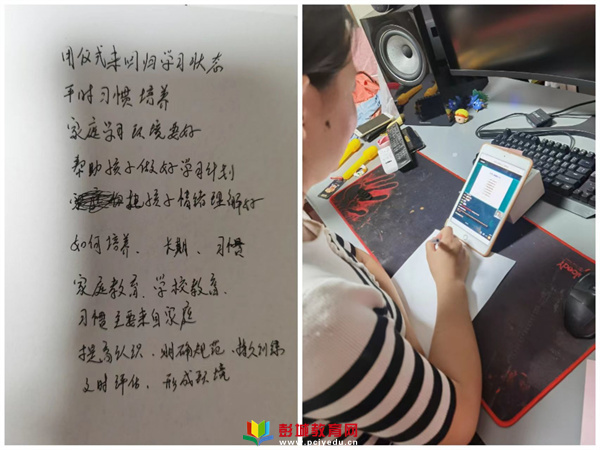 用仪式来回归学习状态
平时习惯培养
家庭学习环境要好
帮助孩子做好学习计划
把孩子情绪理解好
如何培养、长期、习惯
家庭教育、学校教育、
习惯主要来自家庭
提高认识、明确规范、持久训练
及时评估、形成环境
彭城教育网
www.pcjyedu.cn